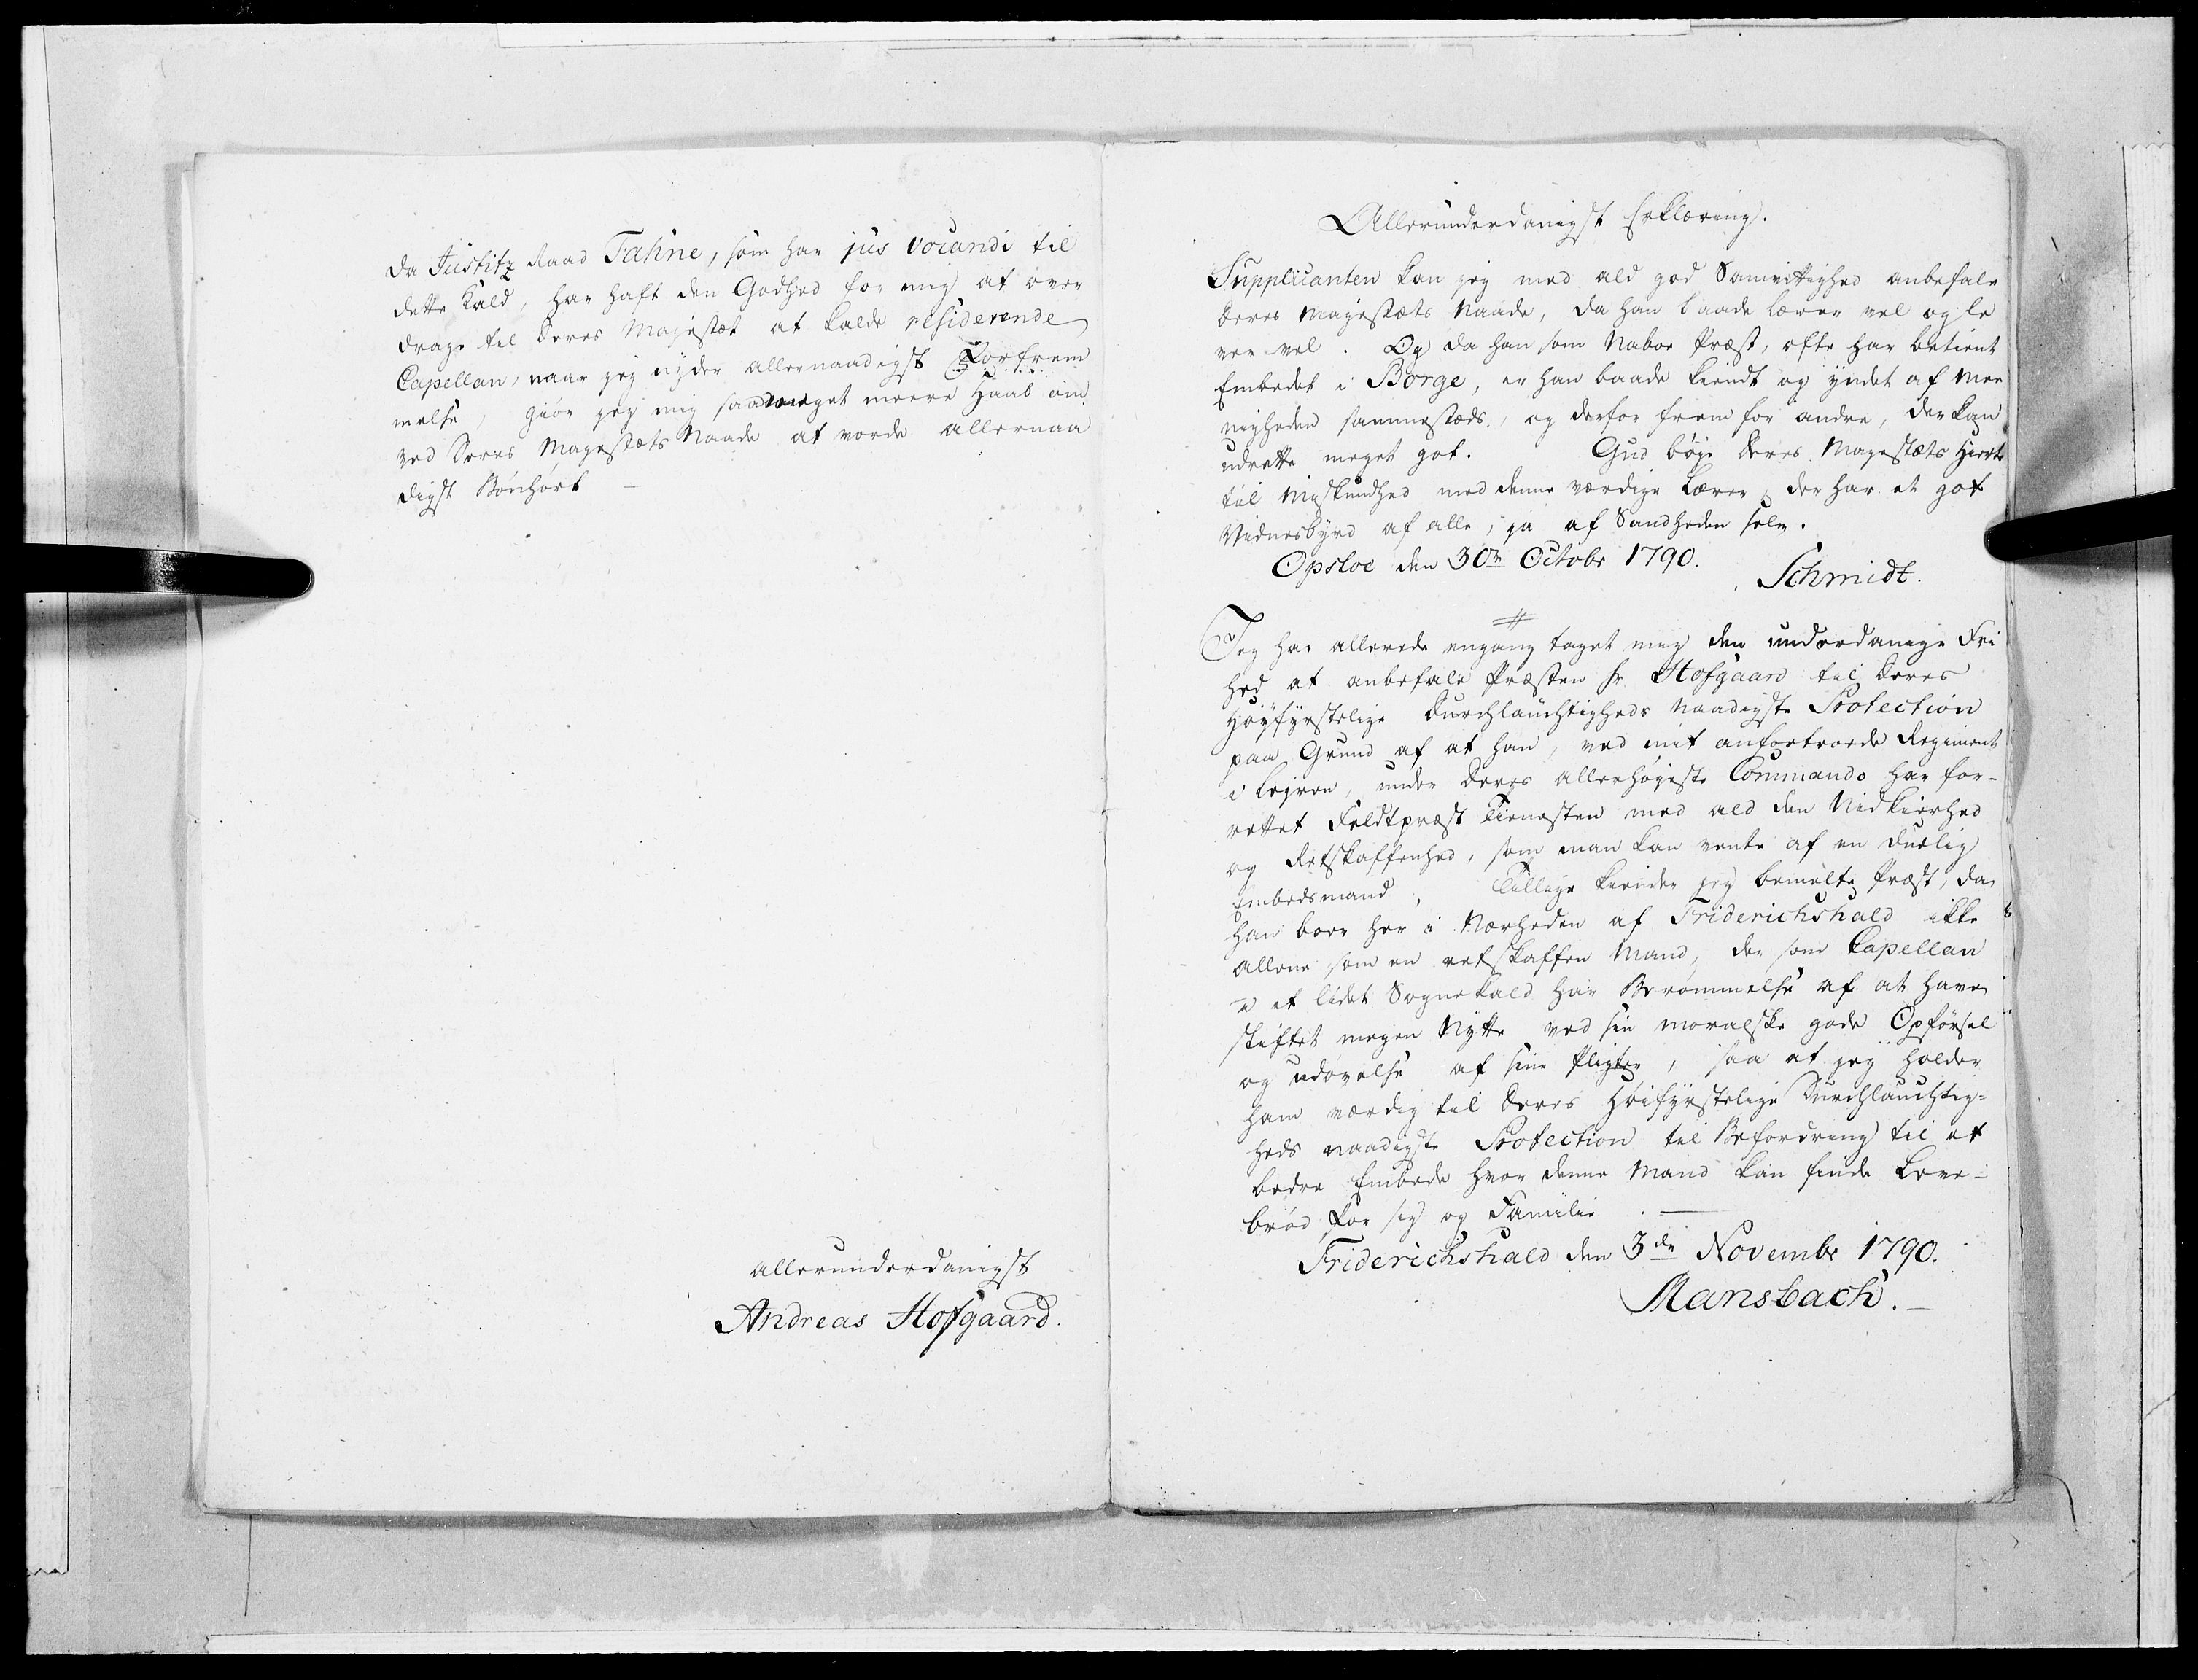 da Justitz Raad Tahne, som har jus vocandi til
dette Kald, har haft den Godhed for mig at over
drage til Deres Majestæt at kalde residerende
Capellan, naar jeg nyder allernaadigst Forfrem
melse, giør jeg mig saa meget meere Haab om
ved Deres Magestæts Naade at vorde allernaa
digst Bønhørt
allerunderdanigst
Andreas Hofgaard.
Allerunderdanigst Erklæring.
Supplicanten kan jeg med ald god Samvittighed anbefale
Deres Magestæts Naade, da han baade lærer vel og le
ver vel. Og da han som Naboe Præst, ofte har betient
Embedet i Borge, er han baade kiendt og yndet af Mee
nigheden sammestæds, og derfor frem for andre, der kan
udrette meget got. Gud bøye Deres Magestæts Hierte
til Miskundhed mod denne værdige Lærer, der har et got
Vidnesbyrd af alle, ja af Sandheden selv.
Opsloe den 30te Octobr 1790.
Schmidt.
Jeg har allerede engang taget mig den underdanige Fri
hed at anbefale Præsten Hr. Hofgaard til Deres
Høyfyrstelige Durchlauchtigheds Naadigste Protection
paa Grund af at han, ved mit anfortroede Regiment
i Lejren, under Deres allerhøjeste Commando har for-
rettet Feldtpræst Tienesten med ald den Nidkierhed
og Retskaffenhed, som man kan vente af en duelig
Embedsmand, Tillige kiender jeg bemelte Præst, da
han boer her i Nærheden af Friderichshald ikke
allene som en retskaffen Mand, der som Capellan
i et lidet Sognekald har Berømmelse af at have
stiftet megen Nytte ved sin moralske gode Opførsel
og udøvelse af sine Pligter, saa at jeg holder
ham værdig til Deres Høifyrstelige Durchlauchtig-
heds naadigste Protection til Befordring til et
bedre Embede hvor denne Mand kan finde Leve-
brød for sig og Familie.
Friderichshald den 3die Novembr 1790.
Mansbach.